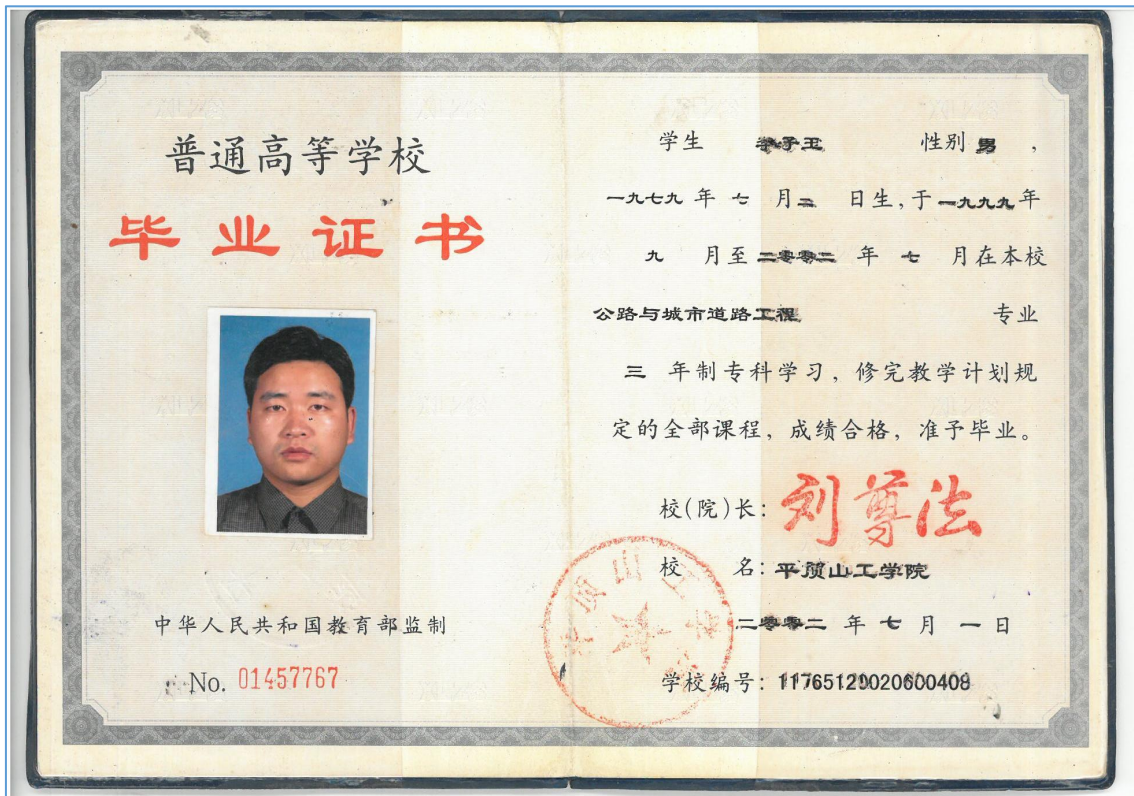 普通高等学校
毕业证书
中华人民共和国教育部监制
No. 01457767
学生 李子玉 性别 男 ,
一九七九 年 七 月 二 日生, 于 一九九九 年
九 月至 二零零二 年 七 月在本校
公路与城市道路工程 专业
三 年制专科学习, 修完教学计划规
定的全部课程, 成绩合格, 准予毕业。
校(院)长: 刘尊法
校 名: 平顶山工学院
二零零二 年 七 月 一 日
学校编号: 11765120020600409
平顶山工学院